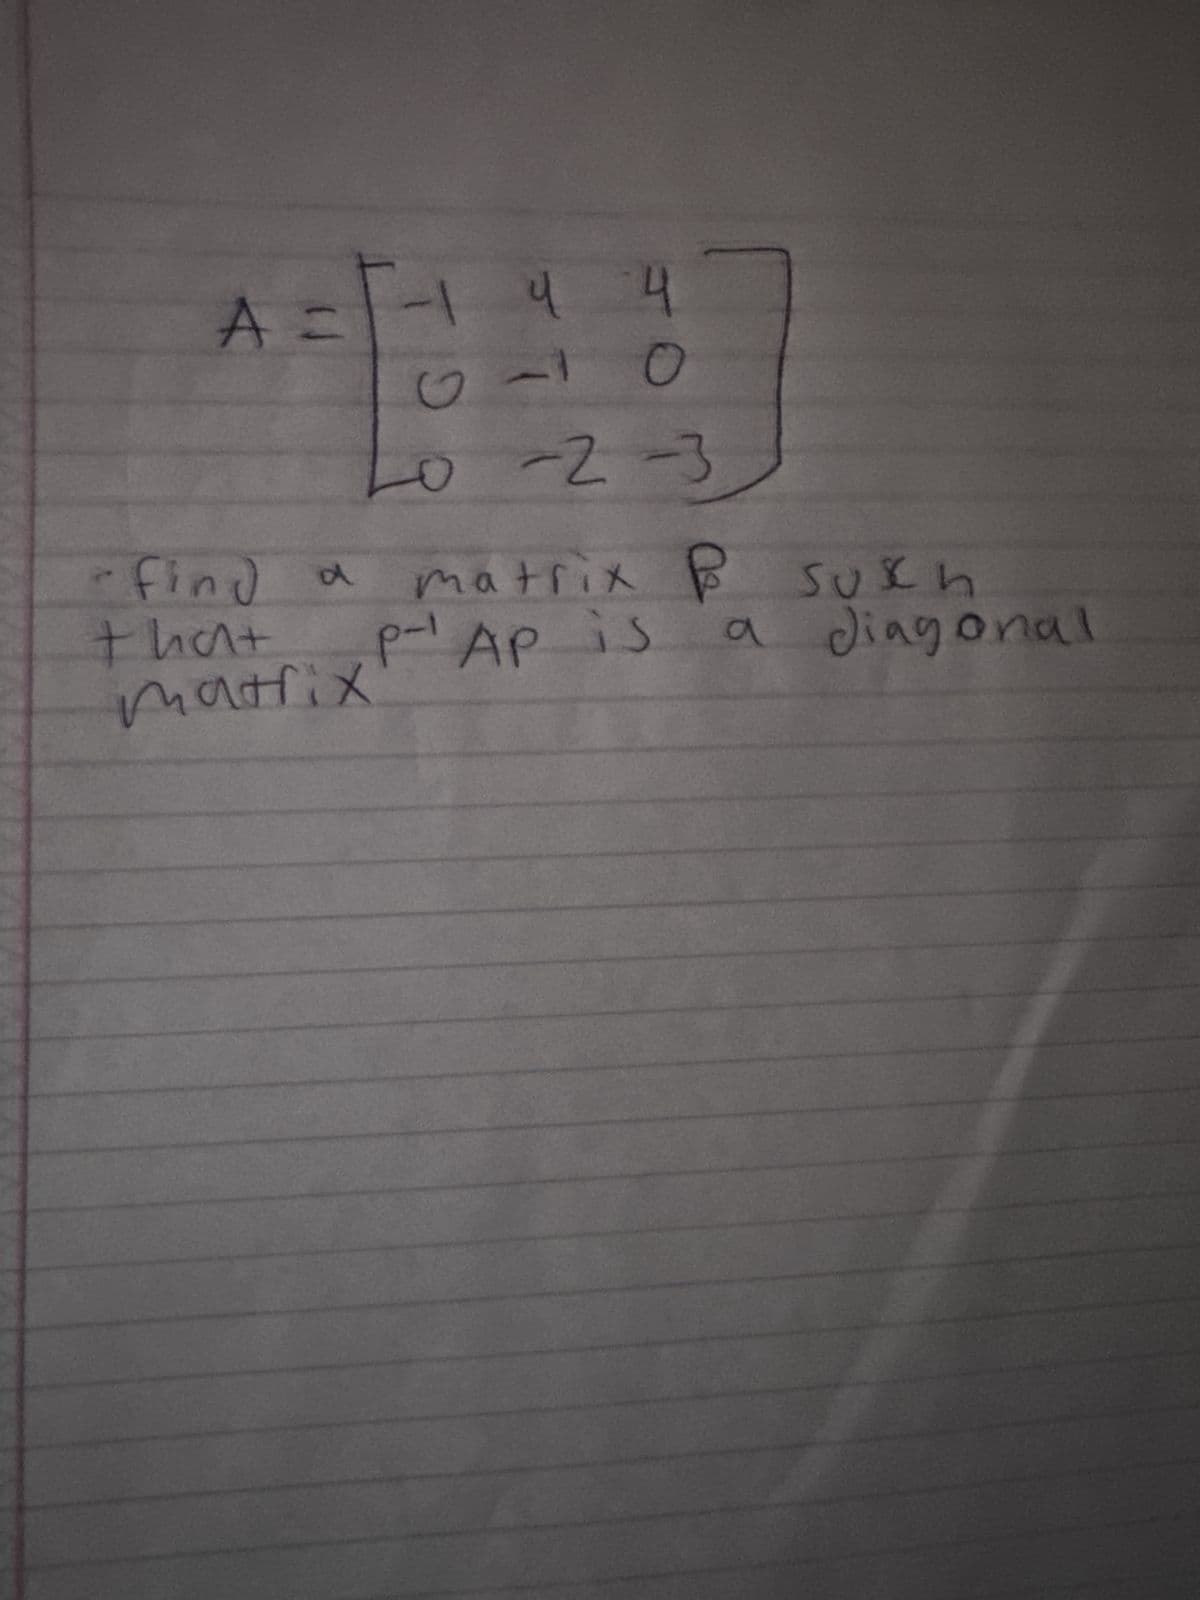 A = [-1 4 4
0 -1 0
0 -2 -3]
- find a matrix P such
that P-1 AP is a diagonal
matrix